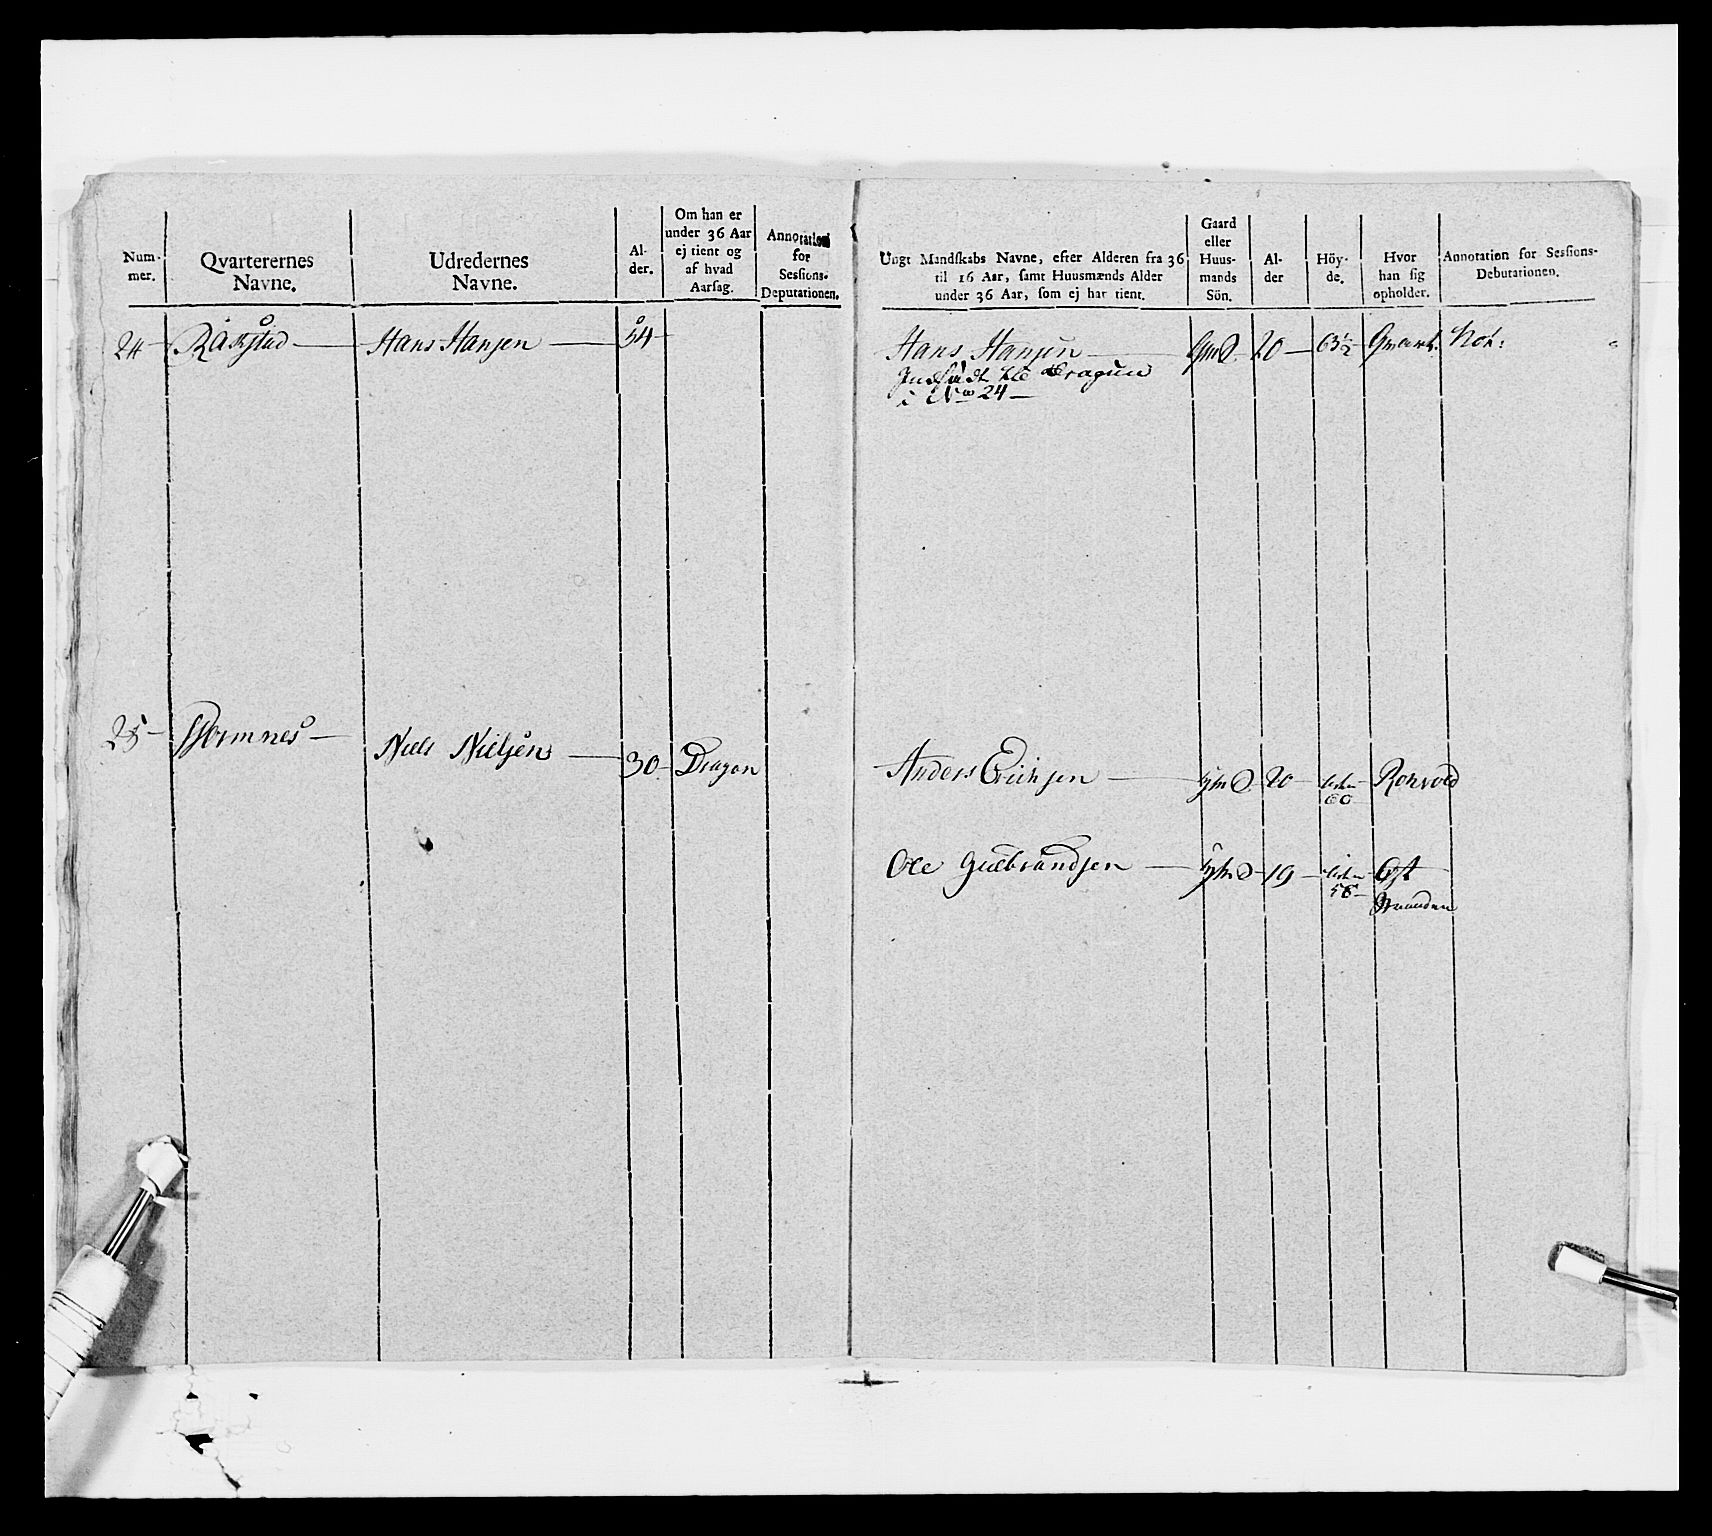 Num-
mer.
Qvarterernes
Navne.
Udredernes
Navne.
Al-
der.
Om han er
under 36 Aar
ej tient og
af hvad
Aarsag.
Annotation
for
Sessions-
Deputationen.
Ungt Mandskabs Navne, efter Alderen fra 36
til 16 Aar, samt Huusmænds Alder
under 36 Aar, som ej har tient.
Gaard
eller
Huus-
mands
Sön.
Al-
der
Höy-
de.
Hvor
han sig
opholder.
Annotation for Sessions-
Debutationen.
24 Rakstad Hans Hansen 54
Hans Hansen 20 63½ Qvart. Not:
Indskudt til Dragun
i No 24
25 Niels Nielsen 30 Dragon
Anders Erichsen 20 Rotvold
60
Ole Gulbrandsen 19 Øst
56